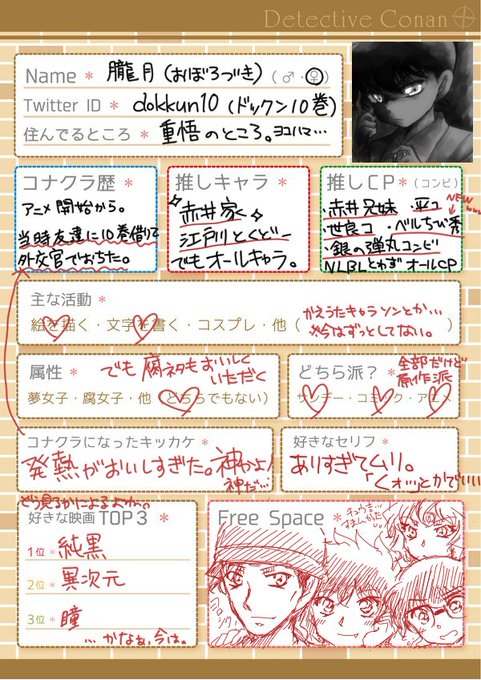 Detective Conan
Name * 朧月(おぼろづき) (♂・♀)
Twitter ID * dokkun10(ドックン10巻)
住んでるところ * 重悟のところ。ヨコハマ…
コナクラ歴 *
アニメ開始から。
当時友達に10巻借りて
外交官でおちた。
推しキャラ *
赤井家
江戸川とくどー
でもオールキャラ。
推しCP *(コンビ)
・赤井兄妹 ・平コ
NEW
・世良コ ・ベルちび秀
・銀の弾丸コンビ
NLBLとわず オールCP
主な活動 *
絵を描く・文字を書く・コスプレ・他(かえうたキャラソンとか…
※今はずっとしてない。)
属性 * でも腐ネタもおいしく
いただく
夢女子・腐女子・他(どちらでもない)
どちら派? * 全部だけど
原作派
サンデー・コミック・アニメ
コナクラになったキッカケ *
発熱がおいしすぎた。神かよ!
神だ…
好きなセリフ *
ありすぎてムリ。
「くォッ」とかでいい
どう見るかによるよね。
好きな映画 TOP3 *
1位 * 純黒
2位 * 異次元
3位 * 瞳
…かなぁ、今は。
Free Space *